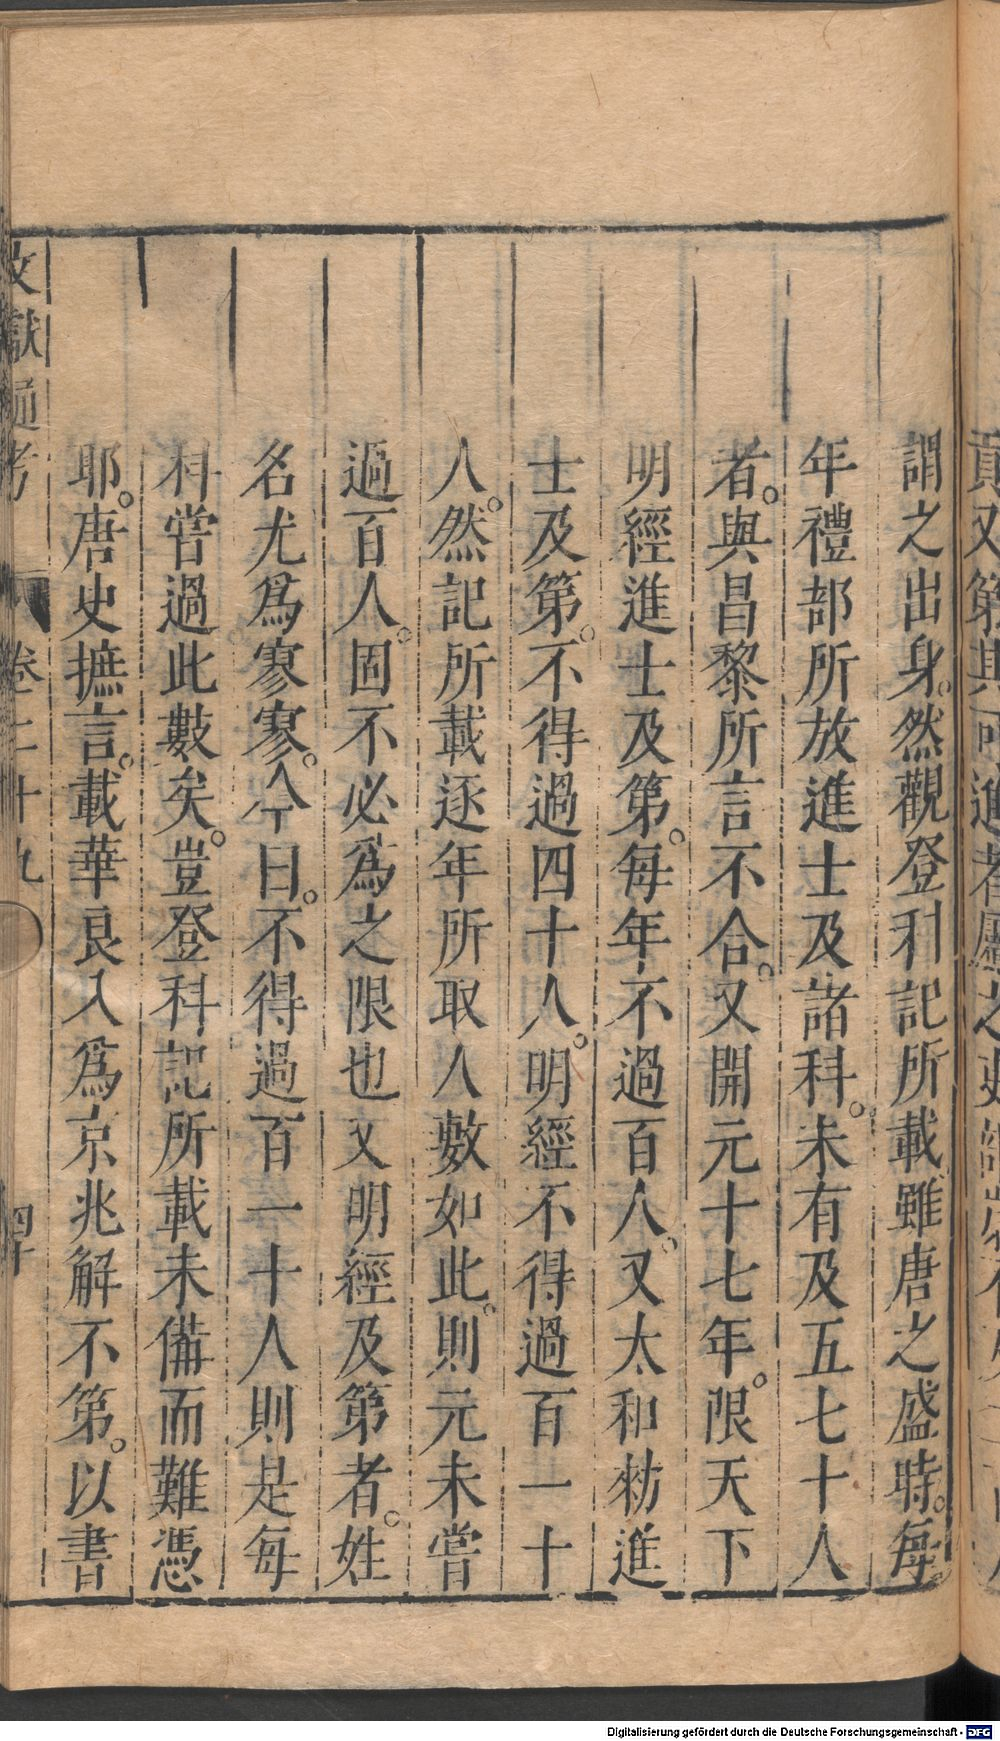 謂之出身。然觀登科記所載雖唐之盛時。每
年禮部所放進士及諸科。未有及五七十人
者。與昌黎所言不合。又開元十七年。限天下
明經進士及第。每年不過百人。又太和勑進
士及第。不得過四十人。明經不得過百一十
人。然記所載逐年所取人數如此。則元未嘗
過百人。固不必爲之限也又明經及第者。姓
名尤爲寥寥。今日。不得過百一十人則是每
科嘗過此數矣。豈登科記所載未備而難憑
耶。唐史摭言。載華良入爲京兆解不第。以書
文獻通考 卷二十九 四十
Digitalisierung gefördert durch die Deutsche Forschungsgemeinschaft - DFG